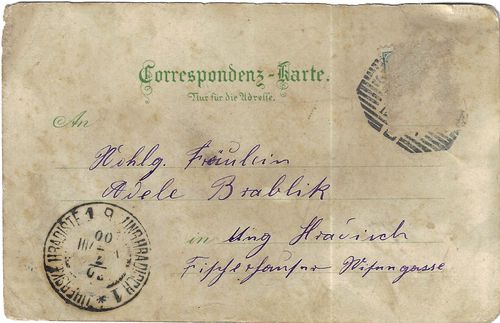 Correspondenz-Karte.
Nur für die Adresse.
An
Wohlg. Fräulein
Adele Brablik
in Ung Hradisch
Fischerhäuser Wisengasse
UHERSKÉ HRADIŠTĚ 1 UNG. HRADISCH 1